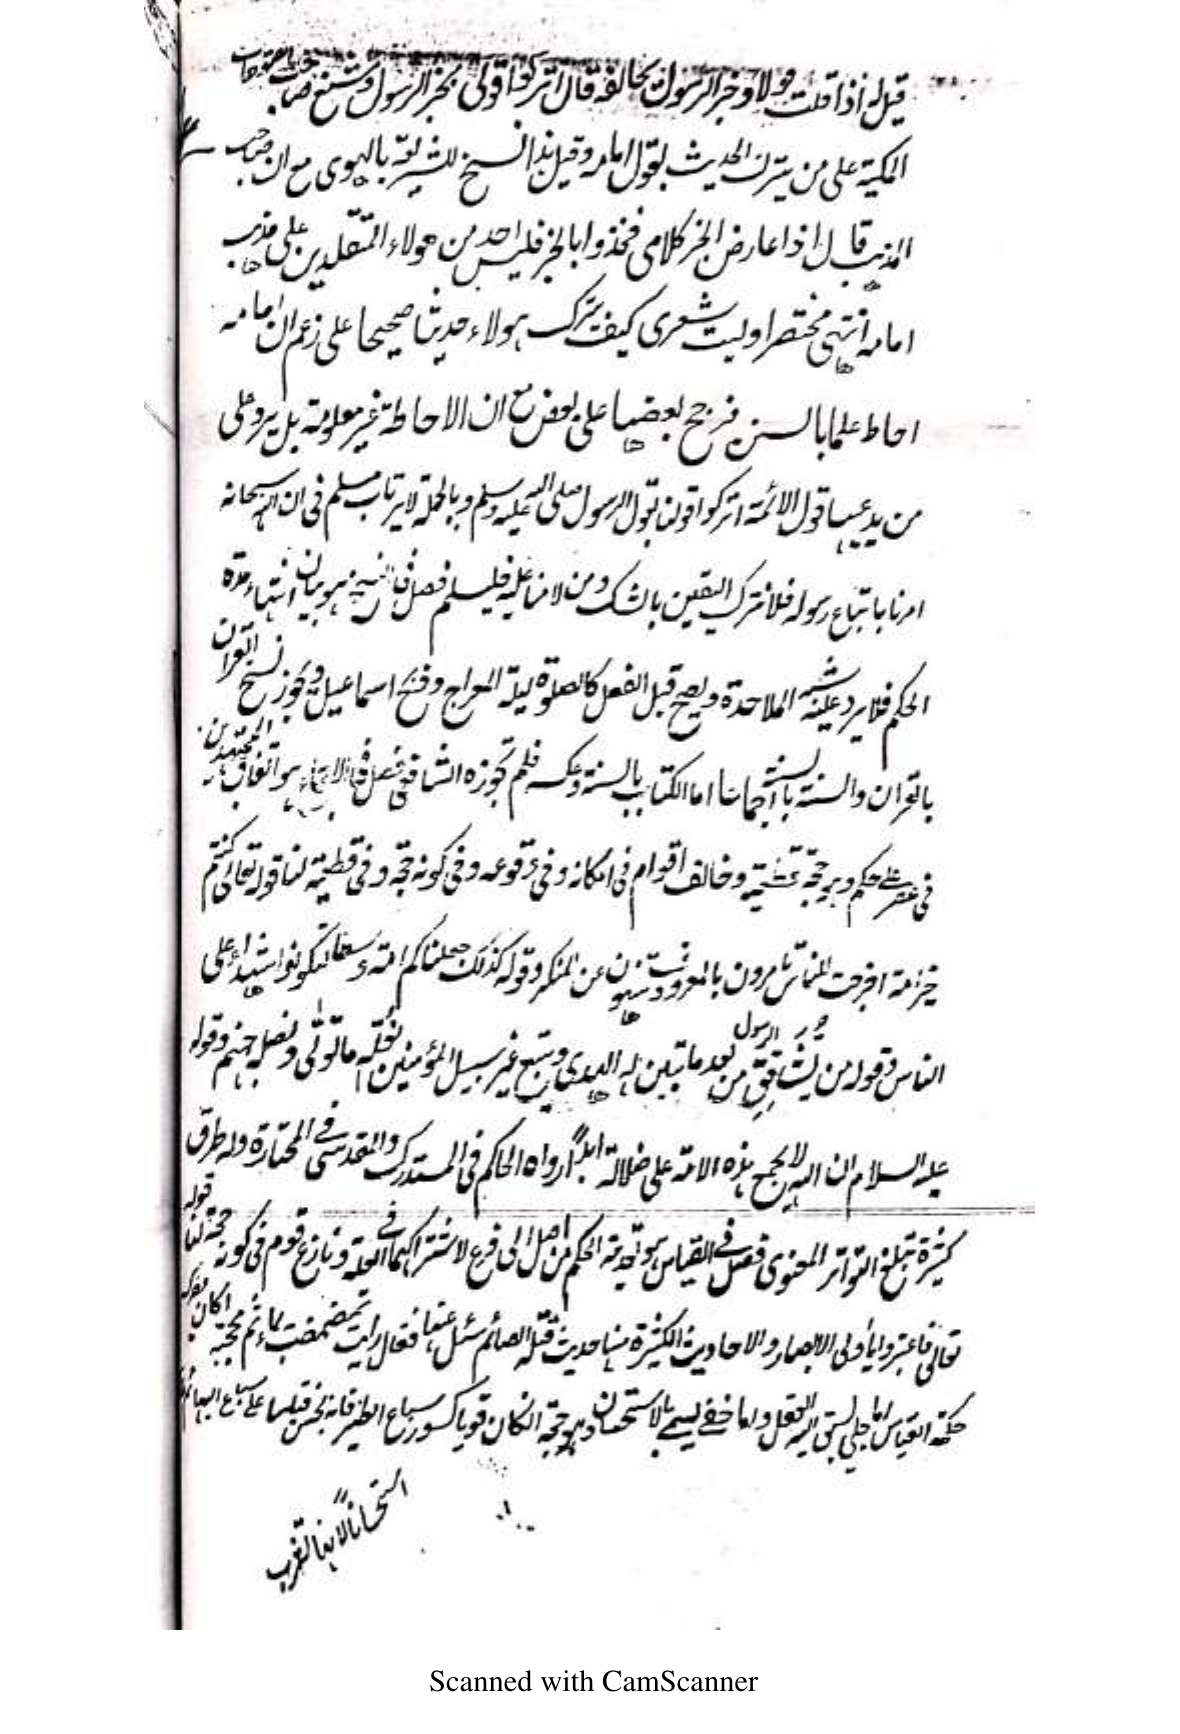 قيل له اذا قلت قولا وخبر الرسول يخالفه قال اتركوا قولى بخبر الرسول وشنع صاحب الفتوحات
المكية على من يترك الحديث بقول امامه وقيل هذا نسخ للشريعة بالهوى مع ان صاحب
المذهب قال اذا عارض الخبر كلامى فخذوا بالخبر فليس احد من هولاء المقلدين على مذهب
امامه انتهى مختصرا وليت شعرى كيف يترك هولاء حديثا صحيحا على زعم ان امامه
احاط علما بالسنن فرجح بعضها على بعض مع ان الاحاطة غير معلومة بل يرد على
من يدعيها قول الائمة اتركوا قولنا بقول الرسول صلى الله عليه وسلم وبالجملة لا يرتاب مسلم فى ان الله سبحانه
امرنا باتباع رسوله فلا نترك اليقين بالشك ومن لامنا عليه فليلم فصل فى النسخ هو بيان انتهاء مدة
الحكم فلا يرد عليه شبه الملاحدة ويصح قبل الفعل كالصلوة ليلة المعراج وذبح اسماعيل ويجوز نسخ القران
بالقران والسنة بالسنة اجماعا اما الكتاب بالسنة وعكسه فلم يجوزه الشافعى فصل فى الاجماع هو اتفاق المجتهدين
فى عصر على حكم وهو حجة قطعية وخالف اقوام فى امكانه وفى وقوعه وفى كونه حجة وفى قطعيته لنا قوله تعالى كنتم
خير امة اخرجت للناس تامرون بالمعروف وتنهون عن المنكر وقوله كذلك جعلناكم امة وسطا لتكونوا شهداء على
الناس وقوله من يشاقق الرسول من بعد ما تبين له الهدى ويتبع غير سبيل المؤمنين نوله ما تولى ونصله جهنم وقوله
عليه السلام ان الله لا يجمع هذه الامة على ضلالة ابدا رواه الحاكم فى المستدرك والمقدسى فى المختارة وله طرق
كثيرة تبلغ التواتر المعنوى فصل فى القياس هو تعدية الحكم من اصل الى فرع لاشتراكهما فى العلة ونازع قوم فى كونه حجة لنا قوله
تعالى فاعتبروا يا اولى الابصار والاحاديث الكثيرة منها حديث قبلة الصائم سئل عنها فقال رايت تمضمضت بماء ثم مججته اكان
حكمة القياس اما جلى يسبق اليه العقل واما خفى يسمى بالاستحسان وهو حجة ان كان قويا كسور سباع الطير فانه نجس قياسا على سباع البهائم
استحسانا لانها تشرب